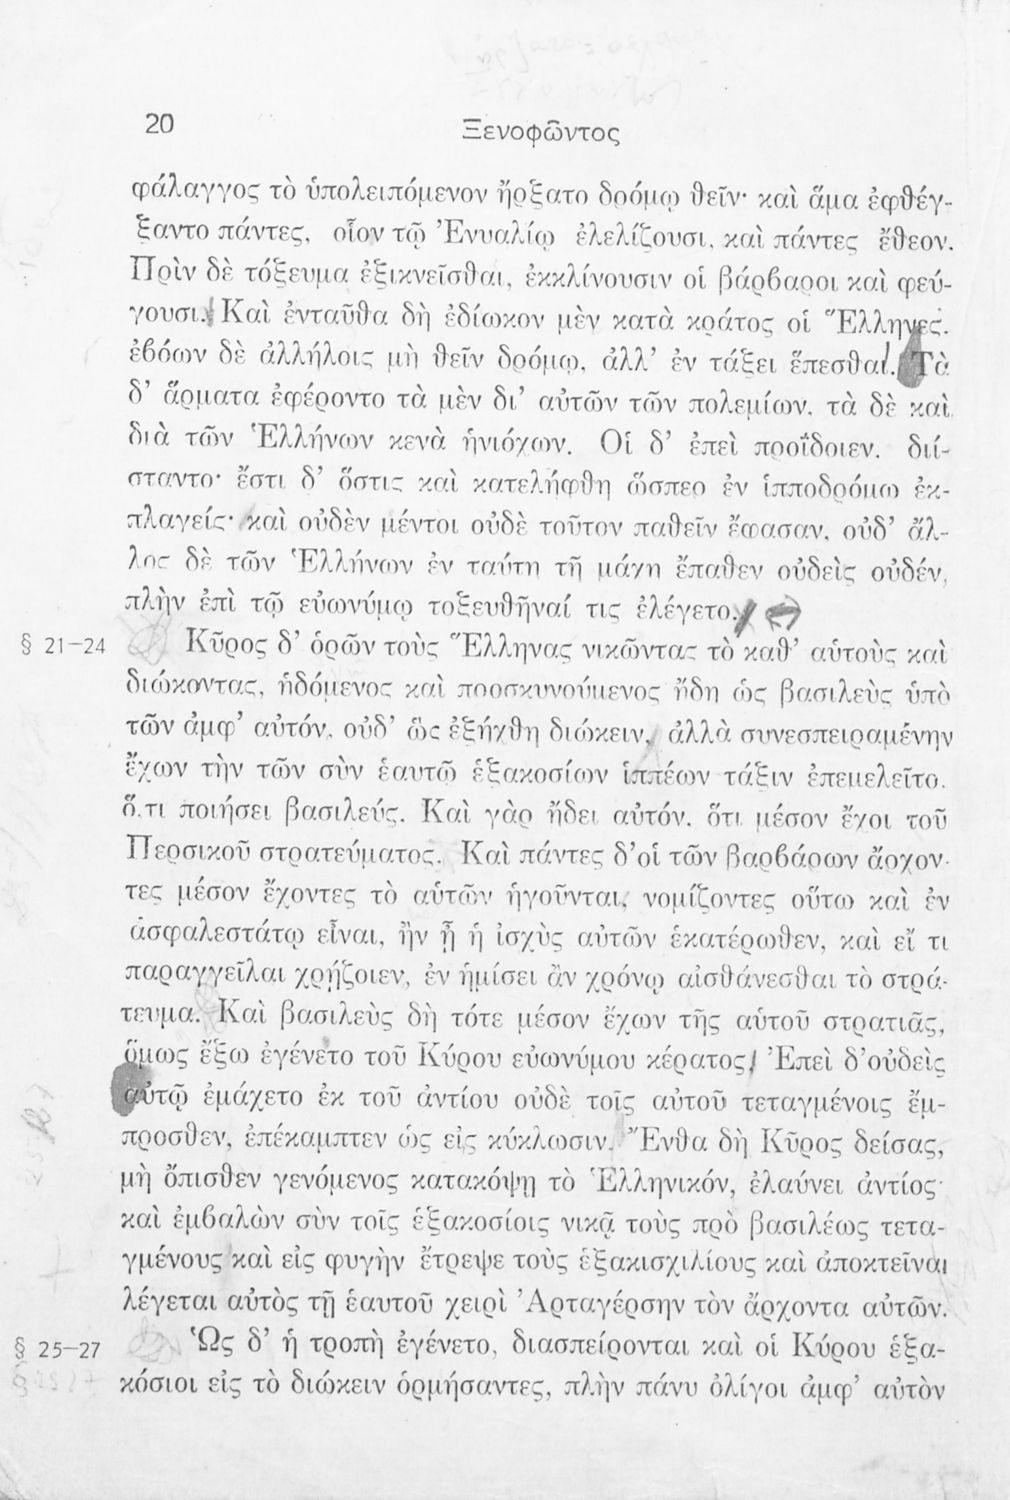 20
Ξενοφῶντος
φάλαγγος τὸ ὑπολειπόμενον ἤρξατο δρόμῳ θεῖν· καὶ ἅμα ἐφθέγ-
ξαντο πάντες, οἷον τῷ Ἐνυαλίῳ ἐλελίζουσι, καὶ πάντες ἔθεον.
Πρὶν δὲ τόξευμα ἐξικνεῖσθαι, ἐκκλίνουσιν οἱ βάρβαροι καὶ φεύ-
γουσι. Καὶ ἐνταῦθα δὴ ἐδίωκον μὲν κατὰ κράτος οἱ Ἕλληνες,
ἐβόων δὲ ἀλλήλοις μὴ θεῖν δρόμῳ, ἀλλ’ ἐν τάξει ἕπεσθαι. Τὰ
δ’ ἅρματα ἐφέροντο τὰ μὲν δι’ αὐτῶν τῶν πολεμίων, τὰ δὲ καὶ
διὰ τῶν Ἑλλήνων κενὰ ἡνιόχων. Οἱ δ’ ἐπεὶ προΐδοιεν, διί-
σταντο· ἔστι δ’ ὅστις καὶ κατελήφθη ὥσπερ ἐν ἱπποδρόμῳ ἐκ-
πλαγείς· καὶ οὐδὲν μέντοι οὐδὲ τοῦτον παθεῖν ἔφασαν, οὐδ’ ἄλ-
λος δὲ τῶν Ἑλλήνων ἐν ταύτῃ τῇ μάχῃ ἔπαθεν οὐδεὶς οὐδέν,
πλὴν ἐπὶ τῷ εὐωνύμῳ τοξευθῆναί τις ἐλέγετο.
§ 21–24 Κῦρος δ’ ὁρῶν τοὺς Ἕλληνας νικῶντας τὸ καθ’ αὑτοὺς καὶ
διώκοντας, ἡδόμενος καὶ προσκυνούμενος ἤδη ὡς βασιλεὺς ὑπὸ
τῶν ἀμφ’ αὐτόν, οὐδ’ ὣς ἐξήχθη διώκειν, ἀλλὰ συνεσπειραμένην
ἔχων τὴν τῶν σὺν ἑαυτῷ ἑξακοσίων ἱππέων τάξιν ἐπεμελεῖτο,
ὅ,τι ποιήσει βασιλεύς. Καὶ γὰρ ᾔδει αὐτόν, ὅτι μέσον ἔχοι τοῦ
Περσικοῦ στρατεύματος. Καὶ πάντες δ’οἱ τῶν βαρβάρων ἄρχον-
τες μέσον ἔχοντες τὸ αὑτῶν ἡγοῦνται, νομίζοντες οὕτω καὶ ἐν
ἀσφαλεστάτῳ εἶναι, ἢν ᾖ ἡ ἰσχὺς αὐτῶν ἑκατέρωθεν, καὶ εἴ τι
παραγγεῖλαι χρῄζοιεν, ἐν ἡμίσει ἂν χρόνῳ αἰσθάνεσθαι τὸ στρά-
τευμα. Καὶ βασιλεὺς δὴ τότε μέσον ἔχων τῆς αὑτοῦ στρατιᾶς,
ὅμως ἔξω ἐγένετο τοῦ Κύρου εὐωνύμου κέρατος. Ἐπεὶ δ’οὐδεὶς
αὐτῷ ἐμάχετο ἐκ τοῦ ἀντίου οὐδὲ τοῖς αὐτοῦ τεταγμένοις ἔμ-
προσθεν, ἐπέκαμπτεν ὡς εἰς κύκλωσιν. Ἔνθα δὴ Κῦρος δείσας,
μὴ ὄπισθεν γενόμενος κατακόψῃ τὸ Ἑλληνικόν, ἐλαύνει ἀντίος·
καὶ ἐμβαλὼν σὺν τοῖς ἑξακοσίοις νικᾷ τοὺς πρὸ βασιλέως τετα-
γμένους καὶ εἰς φυγὴν ἔτρεψε τοὺς ἑξακισχιλίους καὶ ἀποκτεῖναι
λέγεται αὐτὸς τῇ ἑαυτοῦ χειρὶ Ἀρταγέρσην τὸν ἄρχοντα αὐτῶν.
§ 25–27 Ὡς δ’ ἡ τροπὴ ἐγένετο, διασπείρονται καὶ οἱ Κύρου ἑξα-
κόσιοι εἰς τὸ διώκειν ὁρμήσαντες, πλὴν πάνυ ὀλίγοι ἀμφ’ αὐτὸν